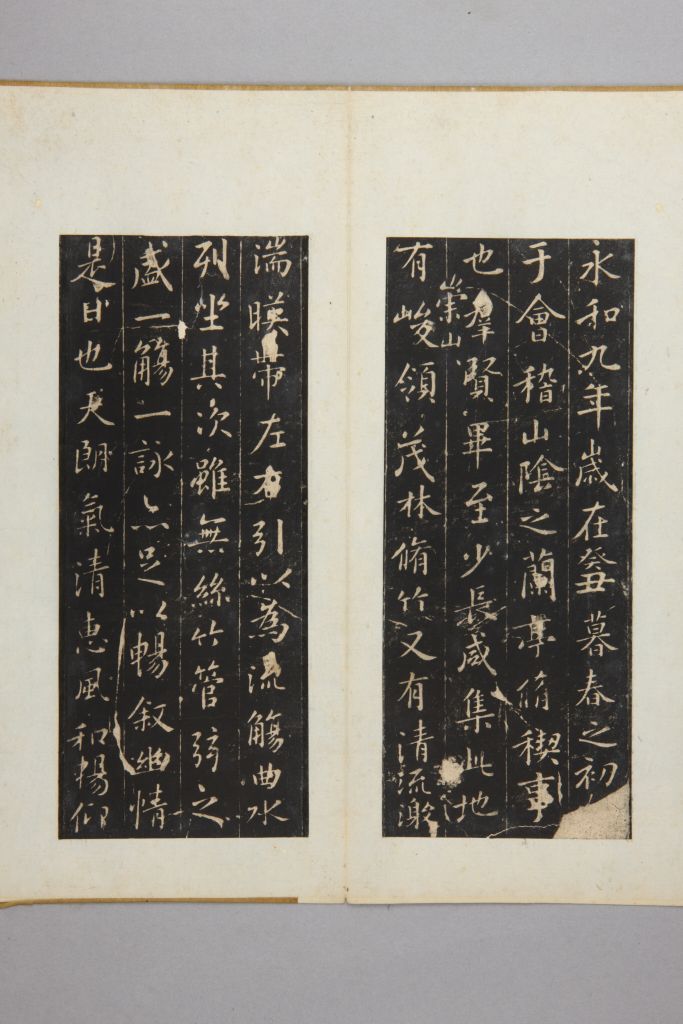 永和九年歲在癸丑暮春之初
于會稽山陰之蘭亭脩稧事
也羣賢畢至少長咸集此地
崇山
有峻領茂林脩竹又有清流激
湍暎帶左右引以為流觴曲水
列坐其次雖無絲竹管弦之
盛一觴一詠亦足以暢叙幽情
是日也天朗氣清惠風和暢仰